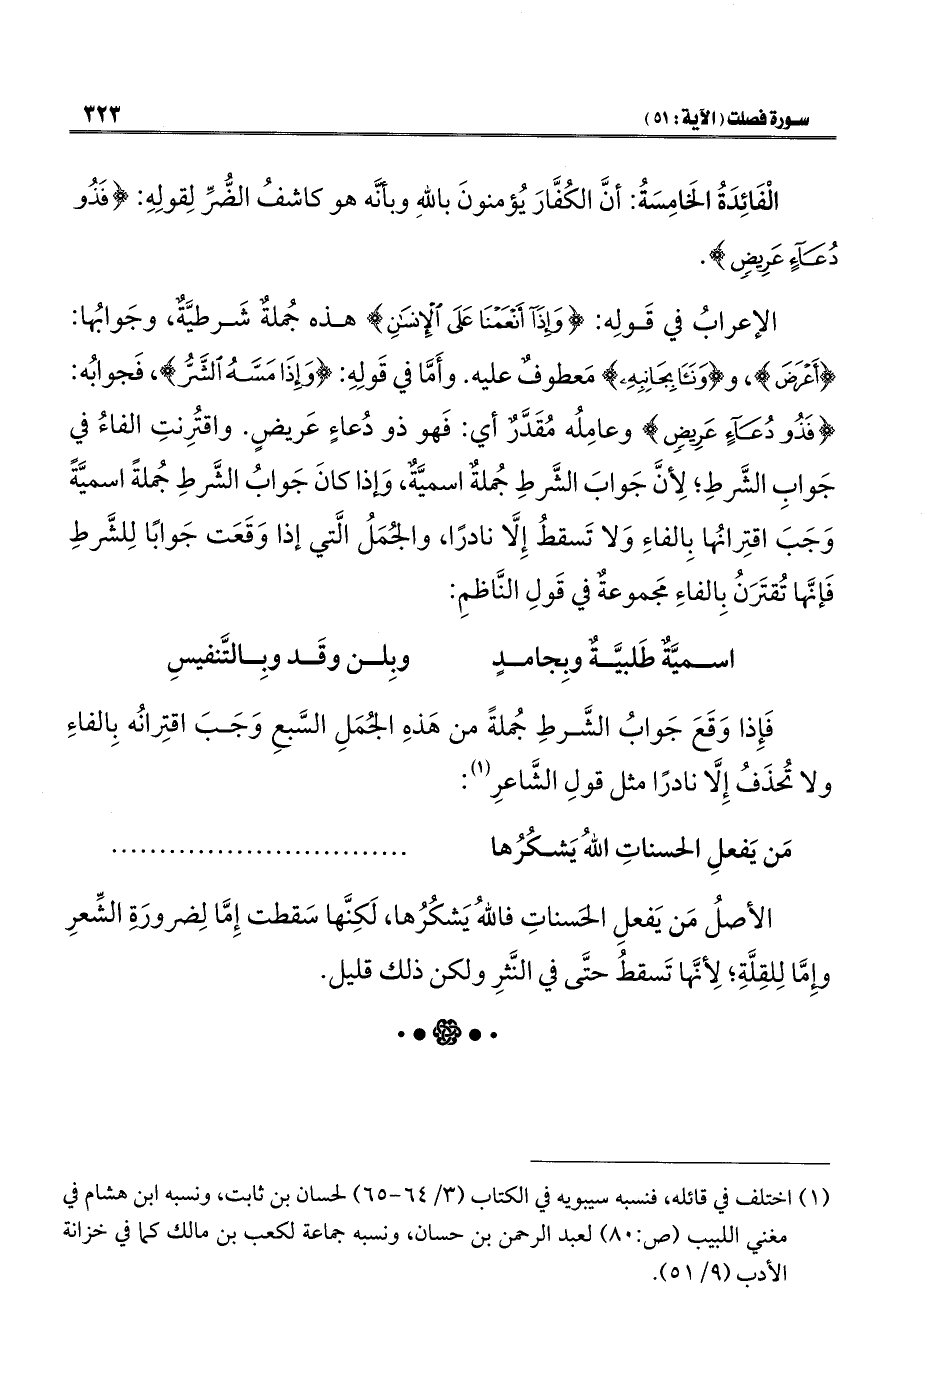 سورة فصلت (الآية: ٥١)
٣٢٣
الْفَائِدَةُ الخَامِسَةُ: أنَّ الكُفَّارَ يُؤمنونَ باللهِ وبأنَّه هو كاشفُ الضُّرِّ لِقولِهِ: ﴿فَذُو
دُعَآءٍ عَرِيضٍ﴾.
الإعرابُ في قَـولِه: ﴿وَإِذَآ أَنْعَمْنَا عَلَى ٱلْإِنسَٰنِ﴾ هـذه جُملةٌ شَـرطيَّةٌ، وجَوابُها:
﴿أَعْرَضَ﴾، و﴿وَنَـَٔا بِجَانِبِهِۦ﴾ مَعطوفٌ عليه. وأَمَّا في قَولِهِ: ﴿وَإِذَا مَسَّهُ ٱلشَّرُّ﴾، فَجوابُه:
﴿فَذُو دُعَآءٍ عَرِيضٍ﴾ وعامِلُه مُقَدَّرٌ أي: فَهو ذو دُعاءٍ عَريضٍ. واقتُرِنتِ الفاءُ في
جَوابِ الشَّرطِ؛ لِأنَّ جَوابَ الشَّرطِ جُملةٌ اسميَّةٌ، وَإذا كانَ جَوابُ الشَّرطِ جُملةً اسميَّةً
وَجَبَ اقتِرانُها بِالفاءِ وَلا تَسقطُ إلَّا نادرًا، والجُمَلُ الَّتي إذا وَقَعَت جَوابًا لِلشَّرطِ
فَإنَّها تُقتَرَنُ بِالفاءِ مَجموعةٌ في قَولِ النَّاظمِ:
اسـميَّةٌ طَلبيَّـةٌ وبِجامـدٍ وبِلـن وقَـد وبِـالتَّنفيسِ
فَإِذا وَقَعَ جَوابُ الشَّـرطِ جُملةً من هَذهِ الجُمَلِ السَّبعِ وَجَـبَ اقتِرانُه بِالفاءِ
ولا تُحذَفُ إلَّا نادرًا مثل قولِ الشَّاعرِ(١):
مَن يَفعلِ الحَسناتِ اللهُ يَشـكُرُها ..............................
الأصلُ مَن يَفعلِ الحَسناتِ فاللهُ يَشكُرُها، لَكِنَّها سَقطت إمَّا لِضرورَةِ الشِّعرِ
وإمَّا لِلقِلَّةِ؛ لِأنَّها تَسقطُ حتَّى في النَّثرِ ولكن ذلك قليل.
(١) اختلف في قائله، فنسبه سيبويه في الكتاب (٣/ ٦٤-٦٥) لحسان بن ثابت، ونسبه ابن هشام في
مغني اللبيب (ص:٨٠) لعبد الرحمن بن حسان، ونسبه جماعة لكعب بن مالك كما في خزانة
الأدب (٩/ ٥١).